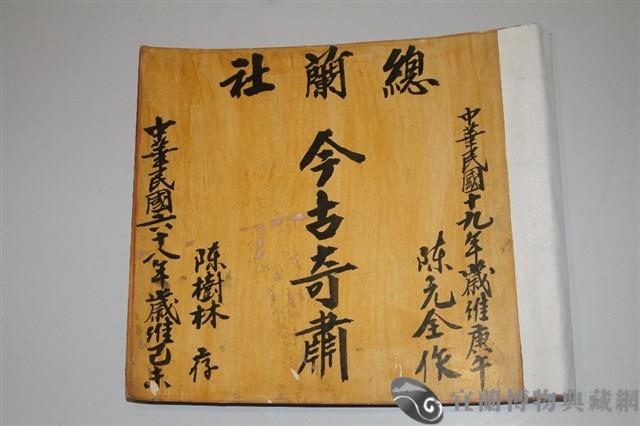 總蘭社
中華民國十九年歲維庚午
陈元全作
今古奇肅
陈樹林 存
中華民國六十八年歲維己未
宜蘭博物典藏網